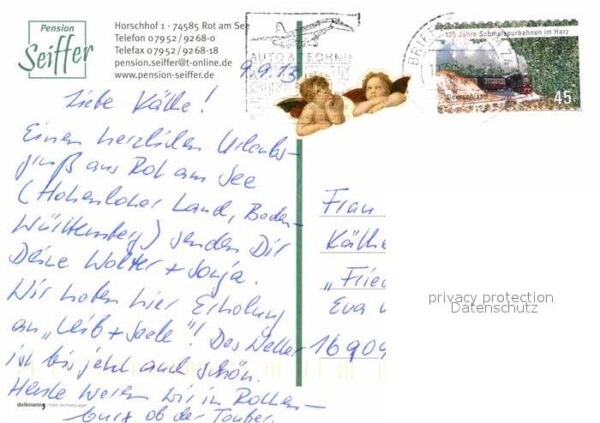 Pension
Seiffer
Horschhof 1 · 74585 Rot am See
Telefon 0 79 52 / 92 68-0
Telefax 0 79 52 / 92 68-18
pension.seiffer@t-online.de
www.pension-seiffer.de
AUTO & TECHNIK
BRIEF
125 Jahre Schmalspurbahnen im Harz
Deutschland
45
9.9.13
Liebe Käthe!
Einen herzlichen Urlaubs-
gruß aus Rot am See
(Hohenloher Land, Baden-
Württemberg) senden Dir
Deine Walter + Sonja.
Wir haben hier Erholung
an „Leib + Seele"! Das Wetter
ist bis jetzt auch schön.
Heute waren wir in Rothen-
burg ob der Tauber.
Frau
Käthe
„Frie
Eva
16909
privacy protection
Datenschutz